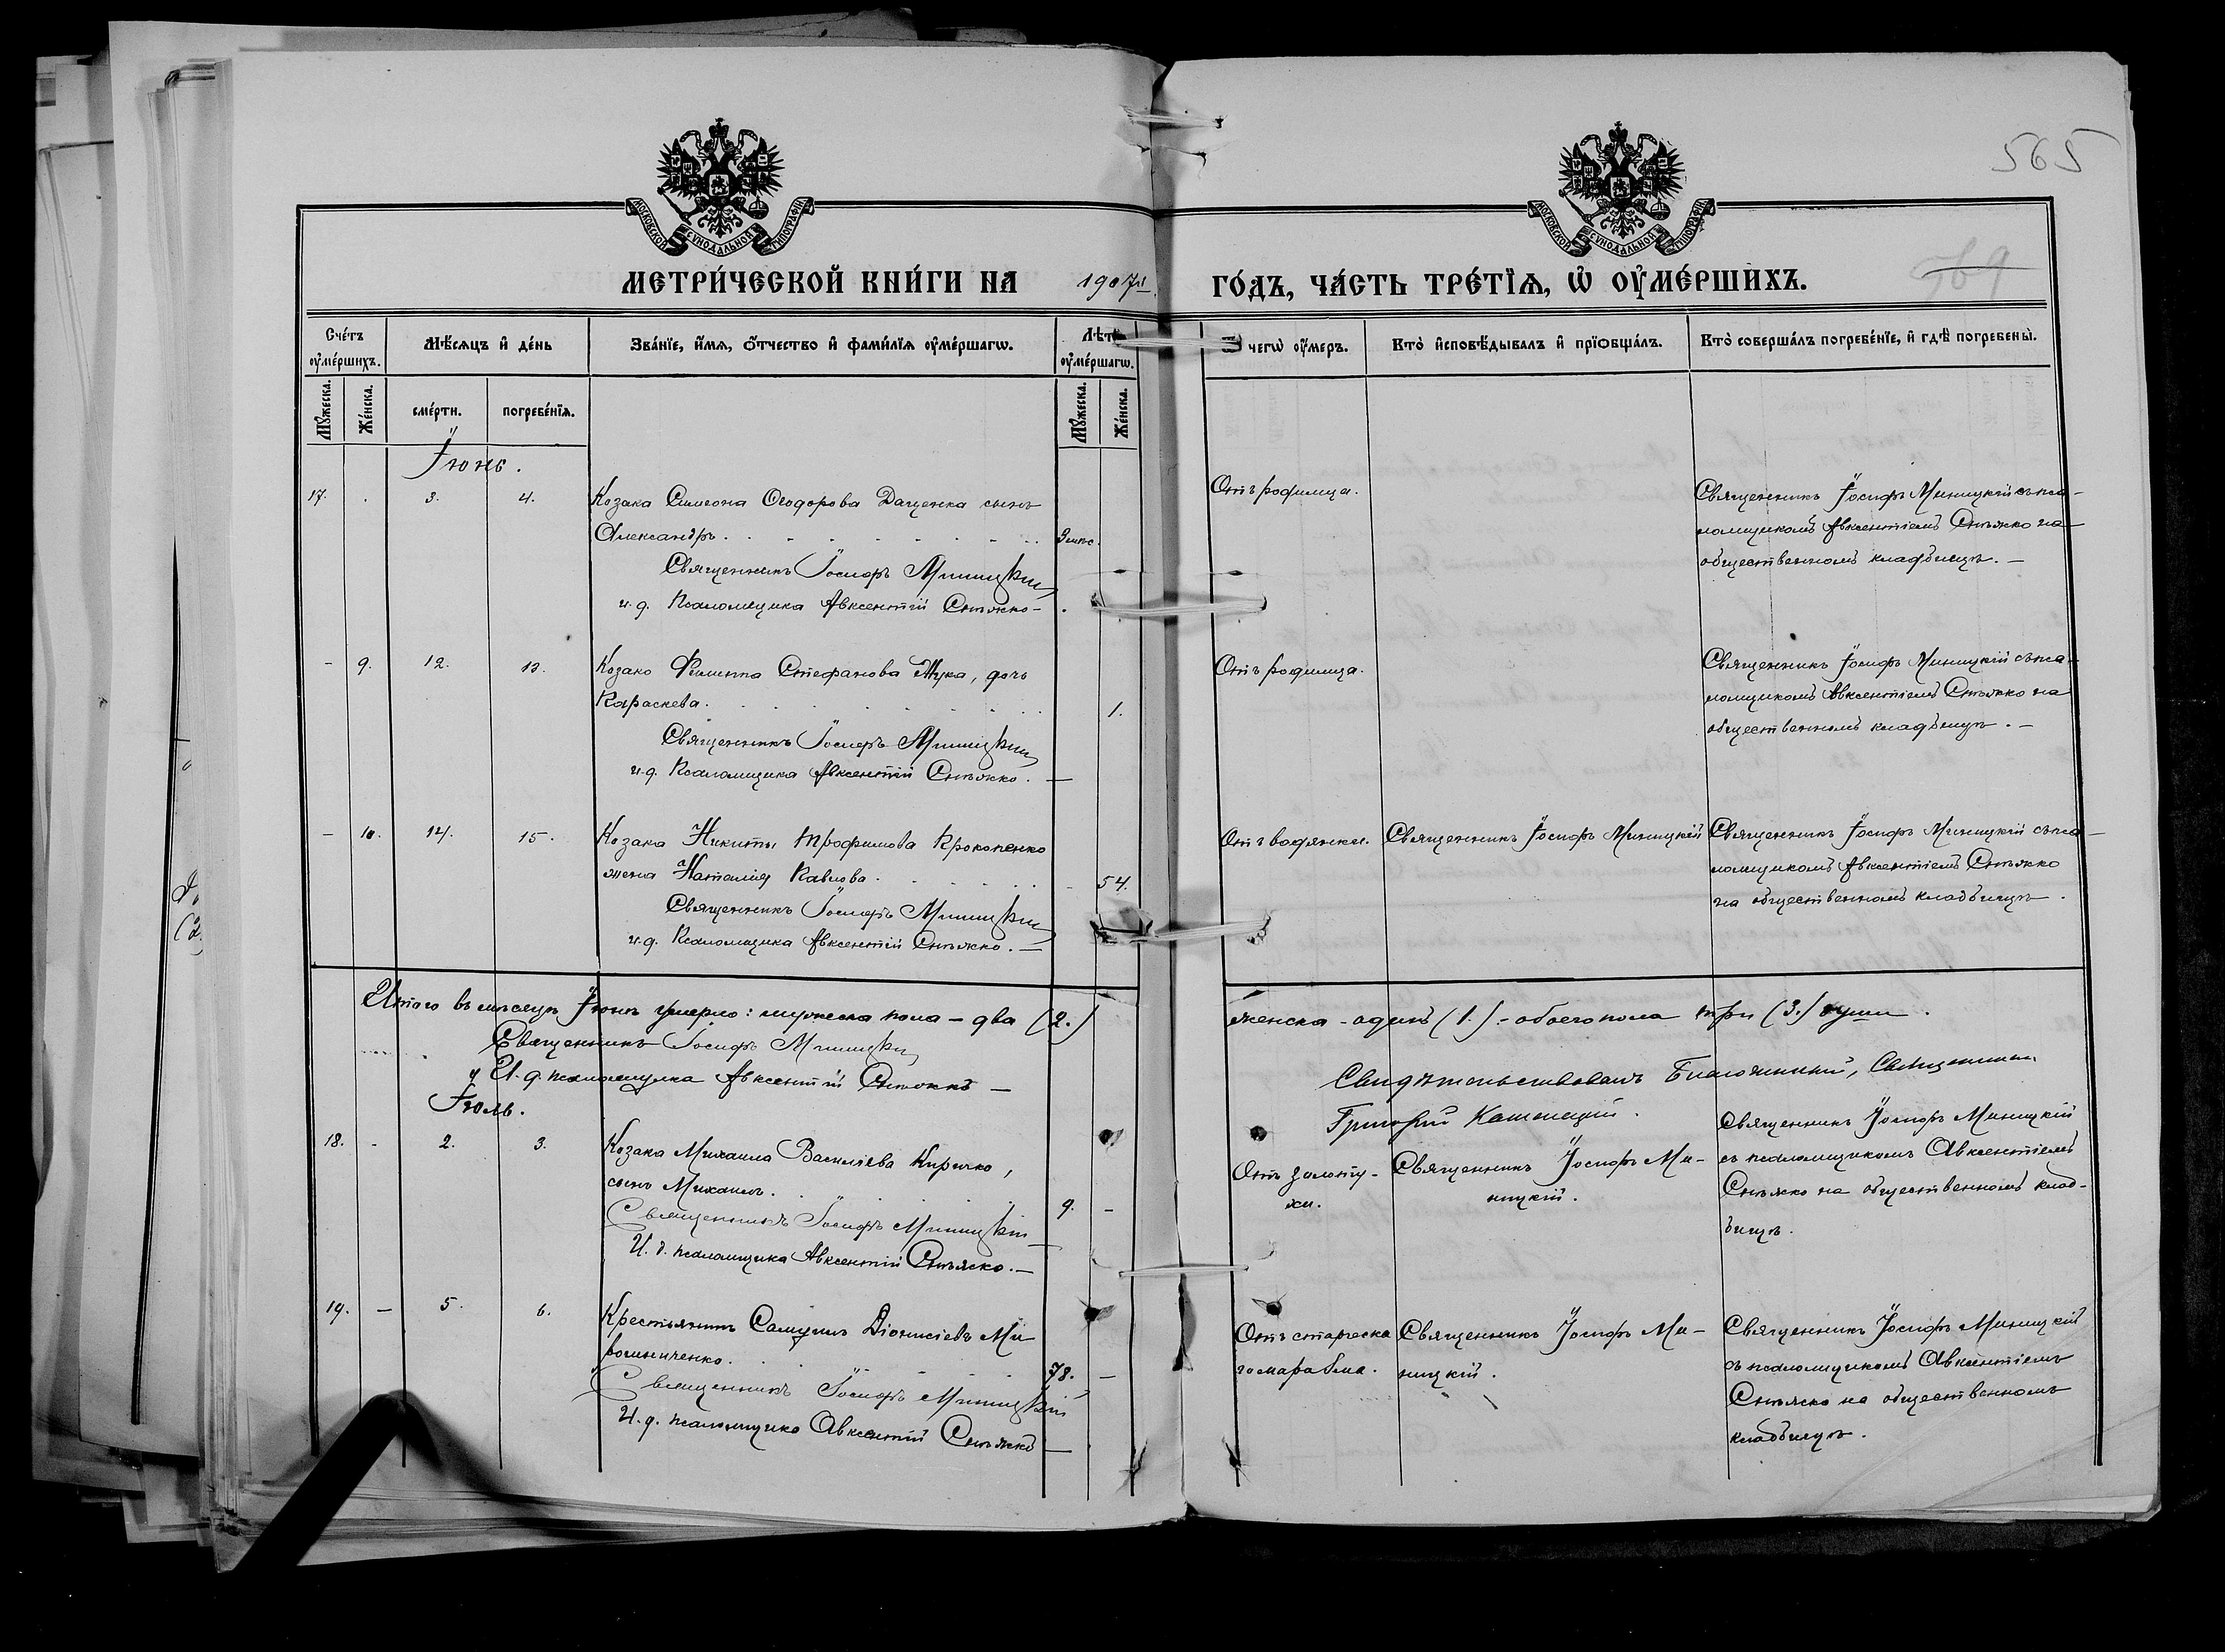 565
569
МОСКОВСКОЙ СѴНОДАЛЬНОЙ ТИПОГРАФІИ
МОСКОВСКОЙ СѴНОДАЛЬНОЙ ТИПОГРАФІИ
МЕТРИ́ЧЕСКОЙ КНИ́ГИ НА 1907й ГО́ДЪ, ЧА́СТЬ ТРЕ́ТІѦ, Ѡ ОУМЕ́РШИХЪ.
Сче́тъ оумершихъ.
Мѣсяцъ и де́нь
Зва́нїе, и́мя, ѻ́тчество и фами́лїя оумершагѡ.
Лѣта оумершагѡ.
Ѿ чегѡ оумеръ.
Кто̀ исповѣдывалъ и прїобщалъ.
Кто̀ соверша́лъ погребе́нїе, и гдѣ погребены̀.
Мꙋжеска.
Же́нска.
сме́рти.
погребе́нїя.
Мꙋжеска.
Же́нска.
Іюнь.
17. . 3. 4. Козака Симеона Ѳеодорова Даценка сынъ
Александръ. 3 мѣс.
Священникъ Іосифъ Миницкій
и. д. Псаломщика Авксентій Снѣжко –
Отъ родимца.
Священникъ Іосифъ Миницкій съ пса-
ломщикомъ Авксентіемъ Снѣжко на
общественномъ кладбищѣ. –
– 9. 12. 13. Козака Филиппа Стефанова Жука, дочь
Параскева. 1.
Священникъ Іосифъ Миницкій
и. д. Псаломщика Авксентій Снѣжко. –
Отъ родимца.
Священникъ Іосифъ Миницкій съ пса-
ломщикомъ Авксентіемъ Снѣжко на
общественномъ кладбищѣ. –
– 10. 14. 15. Козака Никиты Трофимова Прокопенко
жена Наталія Павлова. 54.
Священникъ Іосифъ Миницкій
и. д. Псаломщика Авксентій Снѣжко. –
Отъ водянки.
Священникъ Іосифъ Миницкій
Священникъ Іосифъ Миницкій съ пса-
ломщикомъ Авксентіемъ Снѣжко
на общественномъ кладбищѣ.
Итого въ мѣсяцѣ Іюнѣ умерло: мужеска пола – два (2.) женска – одинъ (1.) – обоего пола три (3.) души.
Священникъ Іосифъ Миницкій
И. д. псаломщика Авксентій Снѣжко –
Свидѣтельствовалъ Благочинный, Священникъ
Григорій
Іюль.
18. – 2. 3. Козака Михаила Василіева Киричко,
сынъ Михаилъ. 9. –
Священникъ Іосифъ Миницкій
И. д. псаломщика Авксентій Снѣжко. –
Отъ золоту-
хи.
Священникъ Іосифъ Ми-
ницкій.
Священникъ Іосифъ Миницкій
съ псаломщикомъ Авксентіемъ
Снѣжко на общественномъ клад-
бищѣ.
19. – 5. 6. Крестьянинъ Самуилъ Діонисіевъ Ми-
рошниченко. 78. –
Священникъ Іосифъ Миницкій
И. д. псаломщика Авксентій Снѣжко –
Отъ старческа
го маразма.
Священникъ Іосифъ Ми-
ницкій.
Священникъ Іосифъ Миницкій
съ псаломщикомъ Авксентіемъ
Снѣжко на общественномъ
кладбищѣ.